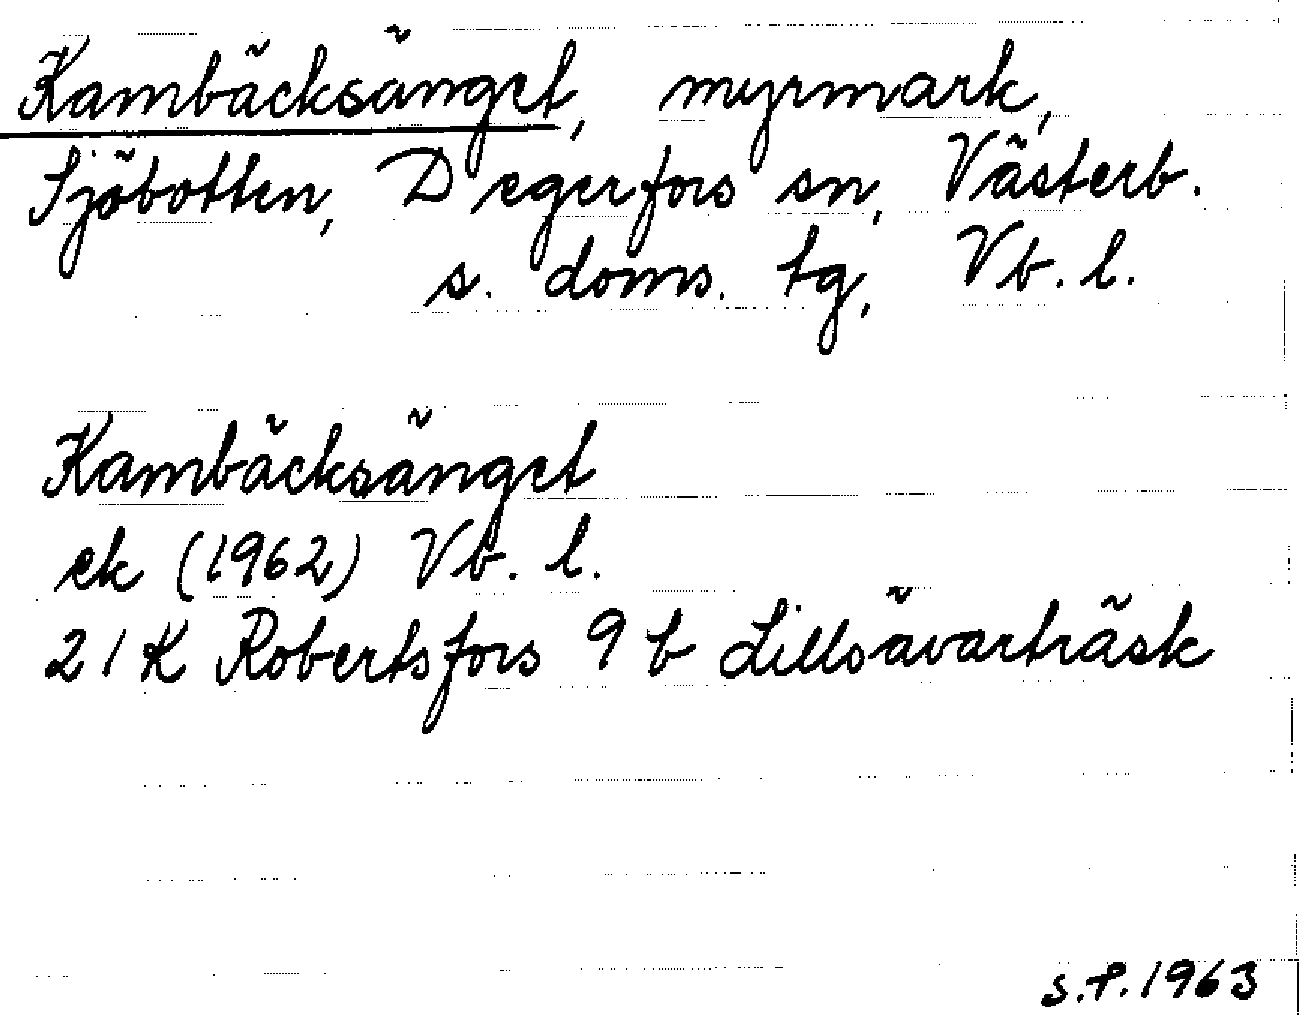 Kambäcksänget, myrmark,
Sjöbotten, Degerfors sn, Västerb.
s. doms. tg, Vb. l.
Kambäcksänget
ek (1962) Vb. l.
21K Robertsfors 9 b Lillsävarträsk
S.P. 1963